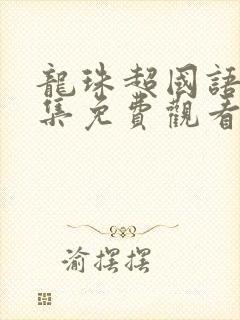 龍珠超國語
集免費觀看
渝摆摆